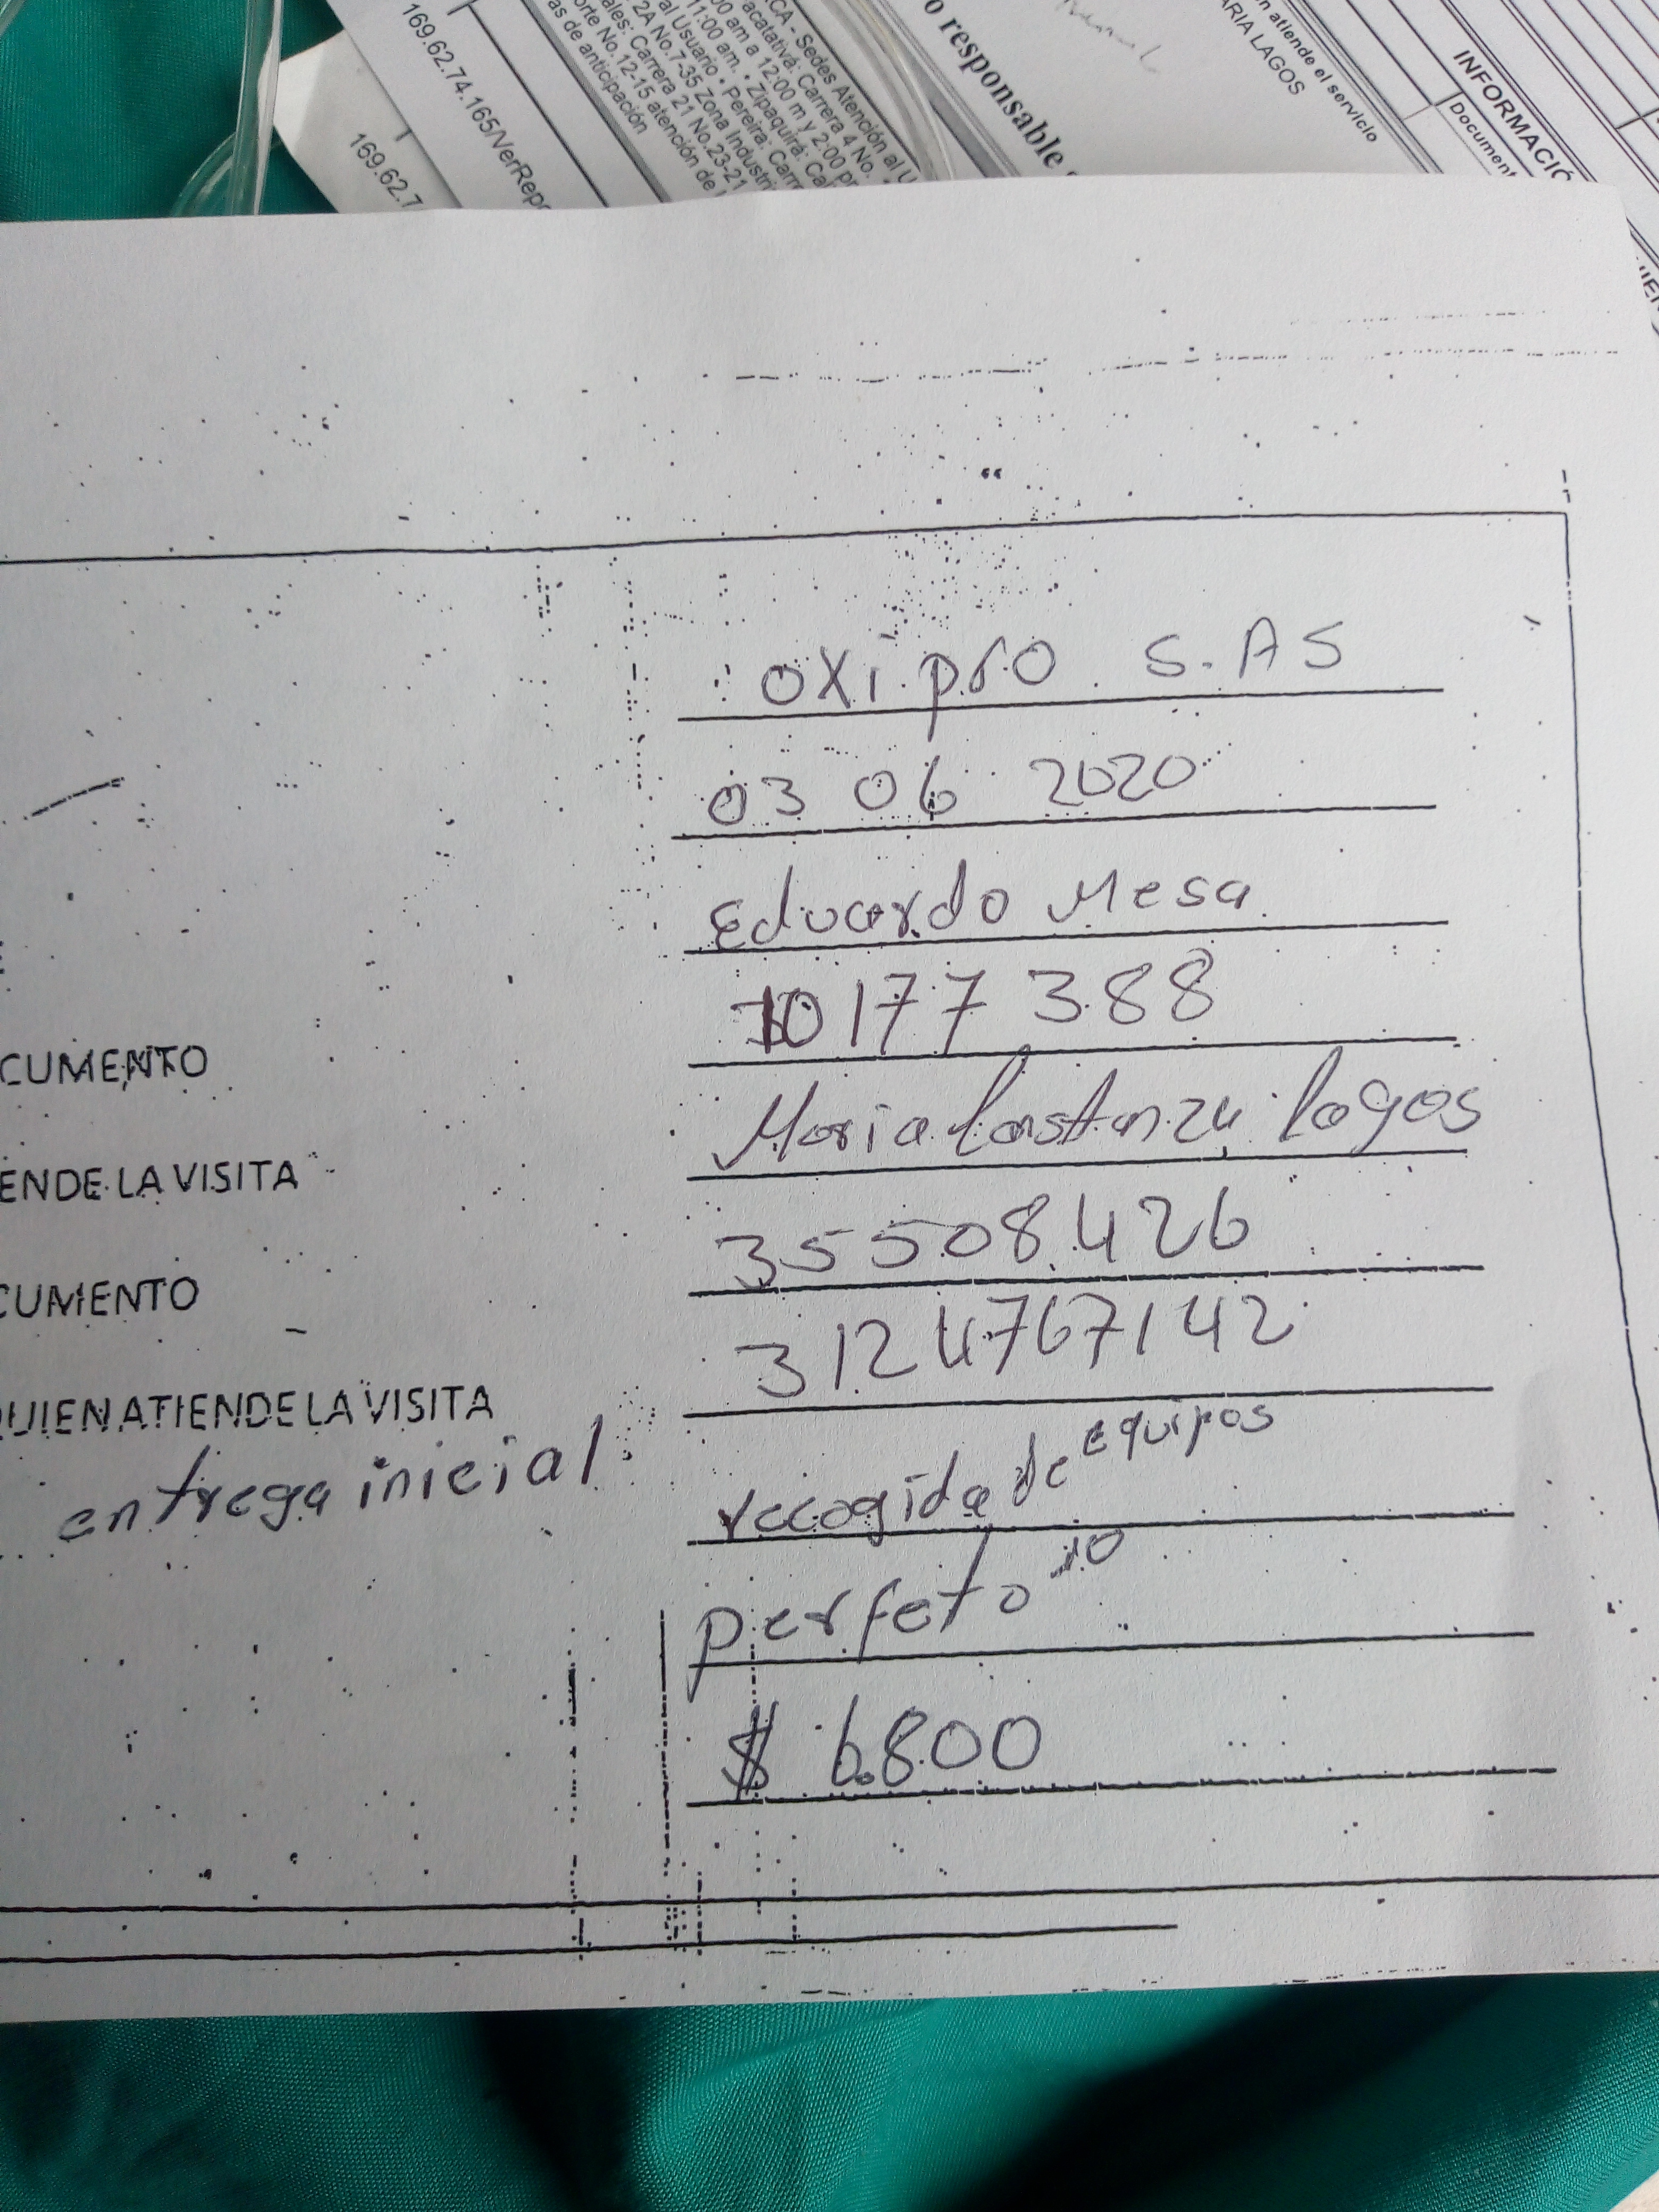 169.62.74.165/VerRepo
169.62.7
CA - Sedes Atención al U
acatativá: Carrera 4 No.
00 am a 12:00 m y 2:00 pr
11:00 am. • Zipaquirá: Cal
al Usuario • Pereira: Carr
2A No.7-35 Zona Industri
ales: Carrera 21 No.23-21
orte No.12-15 atención de
as de anticipación
o responsable
n atiende el servicio
ARIA LAGOS
INFORMACIÓ
Document
oxi pro S.AS
03 06 2020
Eduardo Mesa
10177388
CUMENTO
Maria Constanza Lagos
ENDE LA VISITA
35508426
CUMENTO
3124767142
QUIEN ATIENDE LA VISITA
entrega inicial
recogida de equipos
perfeto
$ 6.800